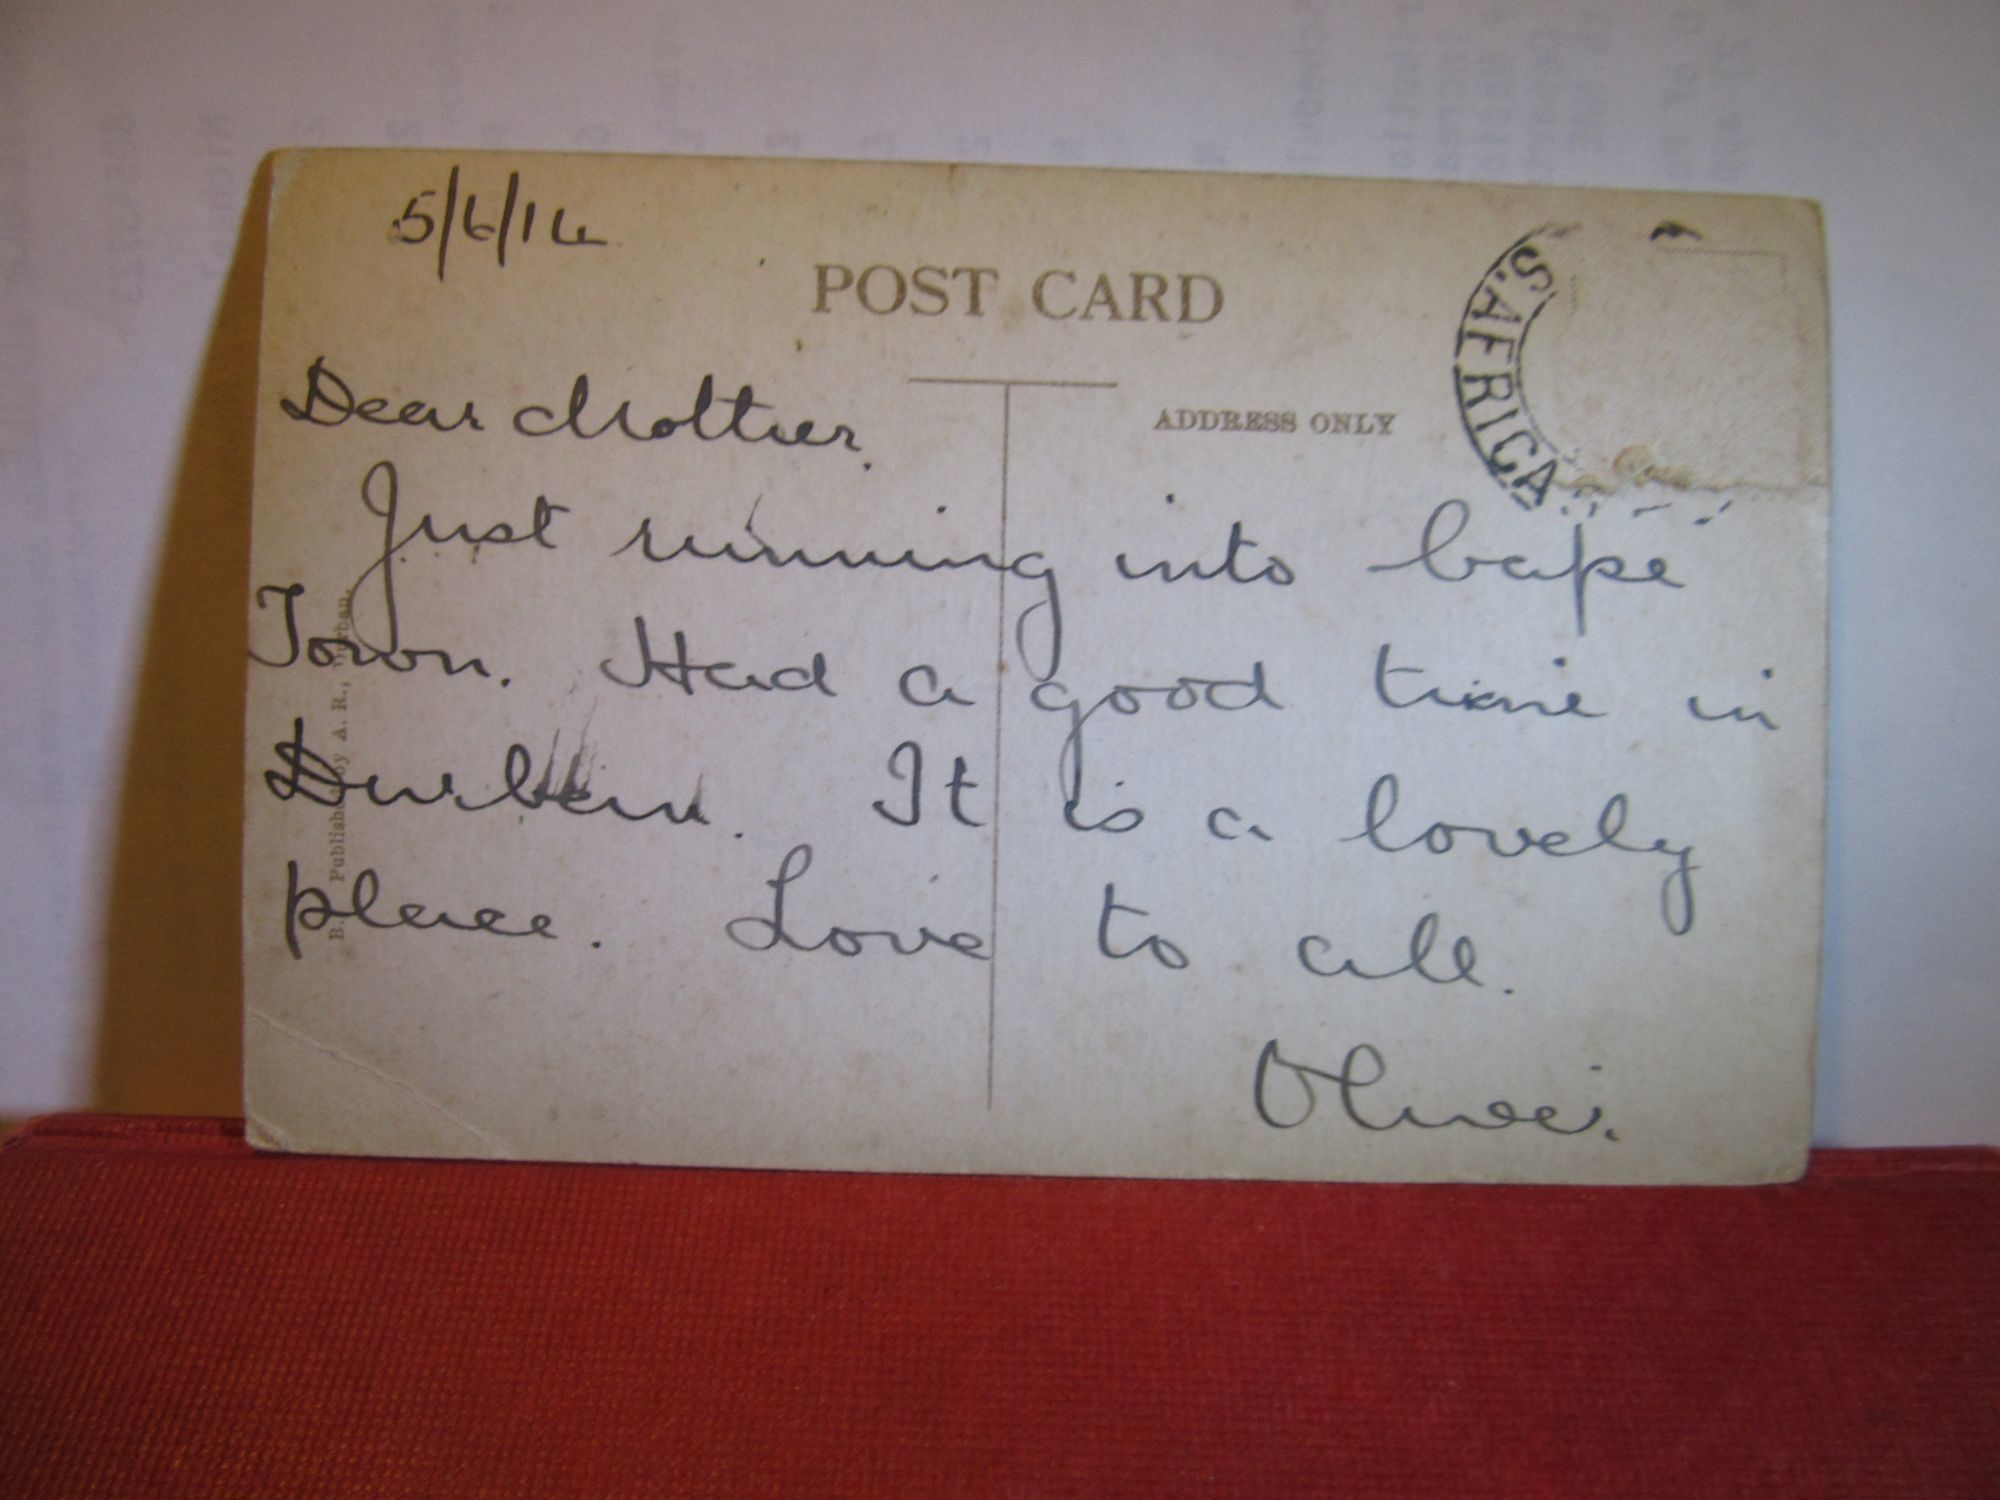 5/6/14
POST CARD
S. AFRICA
ADDRESS ONLY
Dear Mother.
Just running into Cape
Town. Had a good time in
Durban. It is a lovely
place. Love to all.
Published by A. R., Durban.